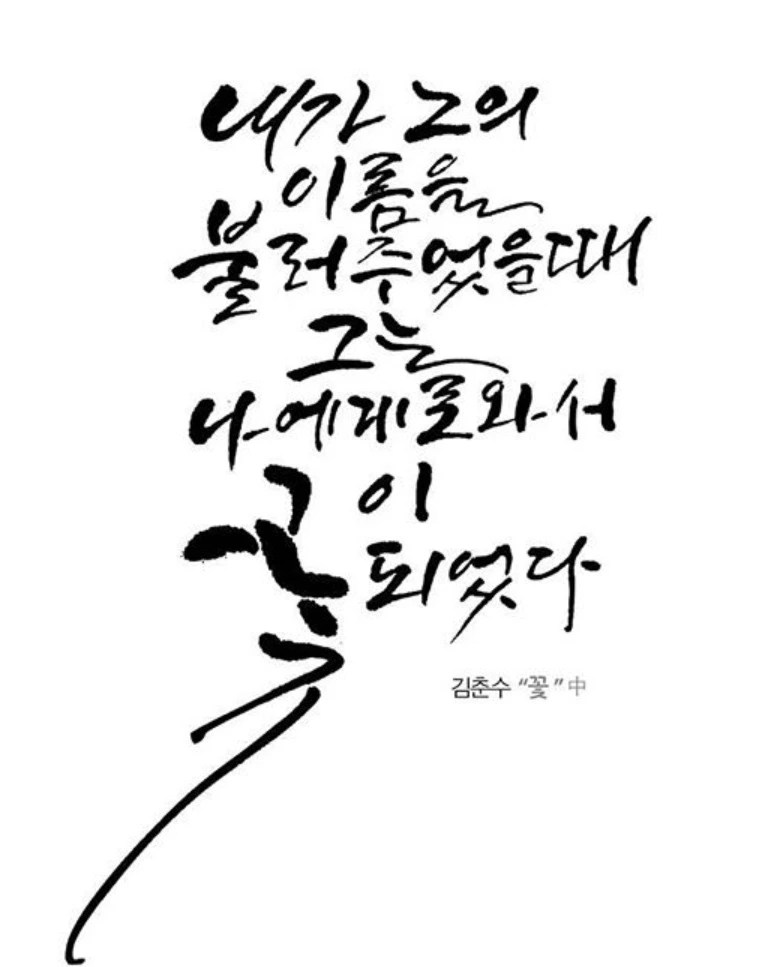 내가 그의
이름을
불러주었을때
그는
나에게로와서
꽃이
되었다
김춘수 “꽃” 中